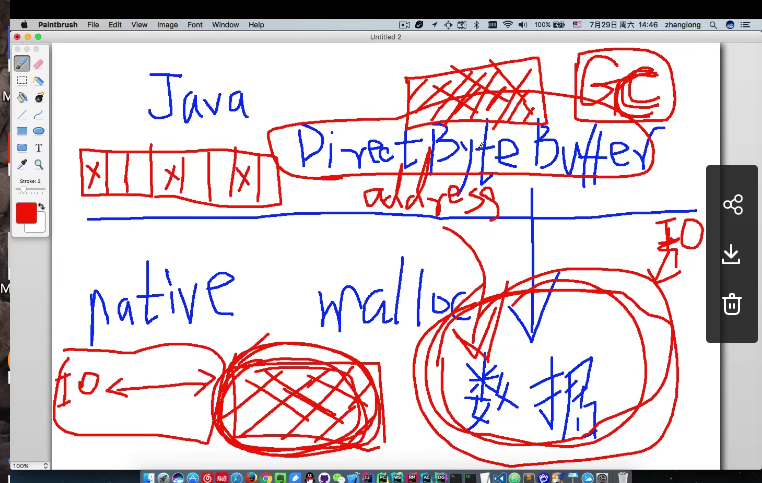 Paintbrush File Edit View Image Font Window Help 100% 7月29日 周六 14:46 zhanglong
Untitled 2
Java
GC
DirectByteBuffer
X X X
address
IO
native malloc
IO
数据
Stroke: 3
100%